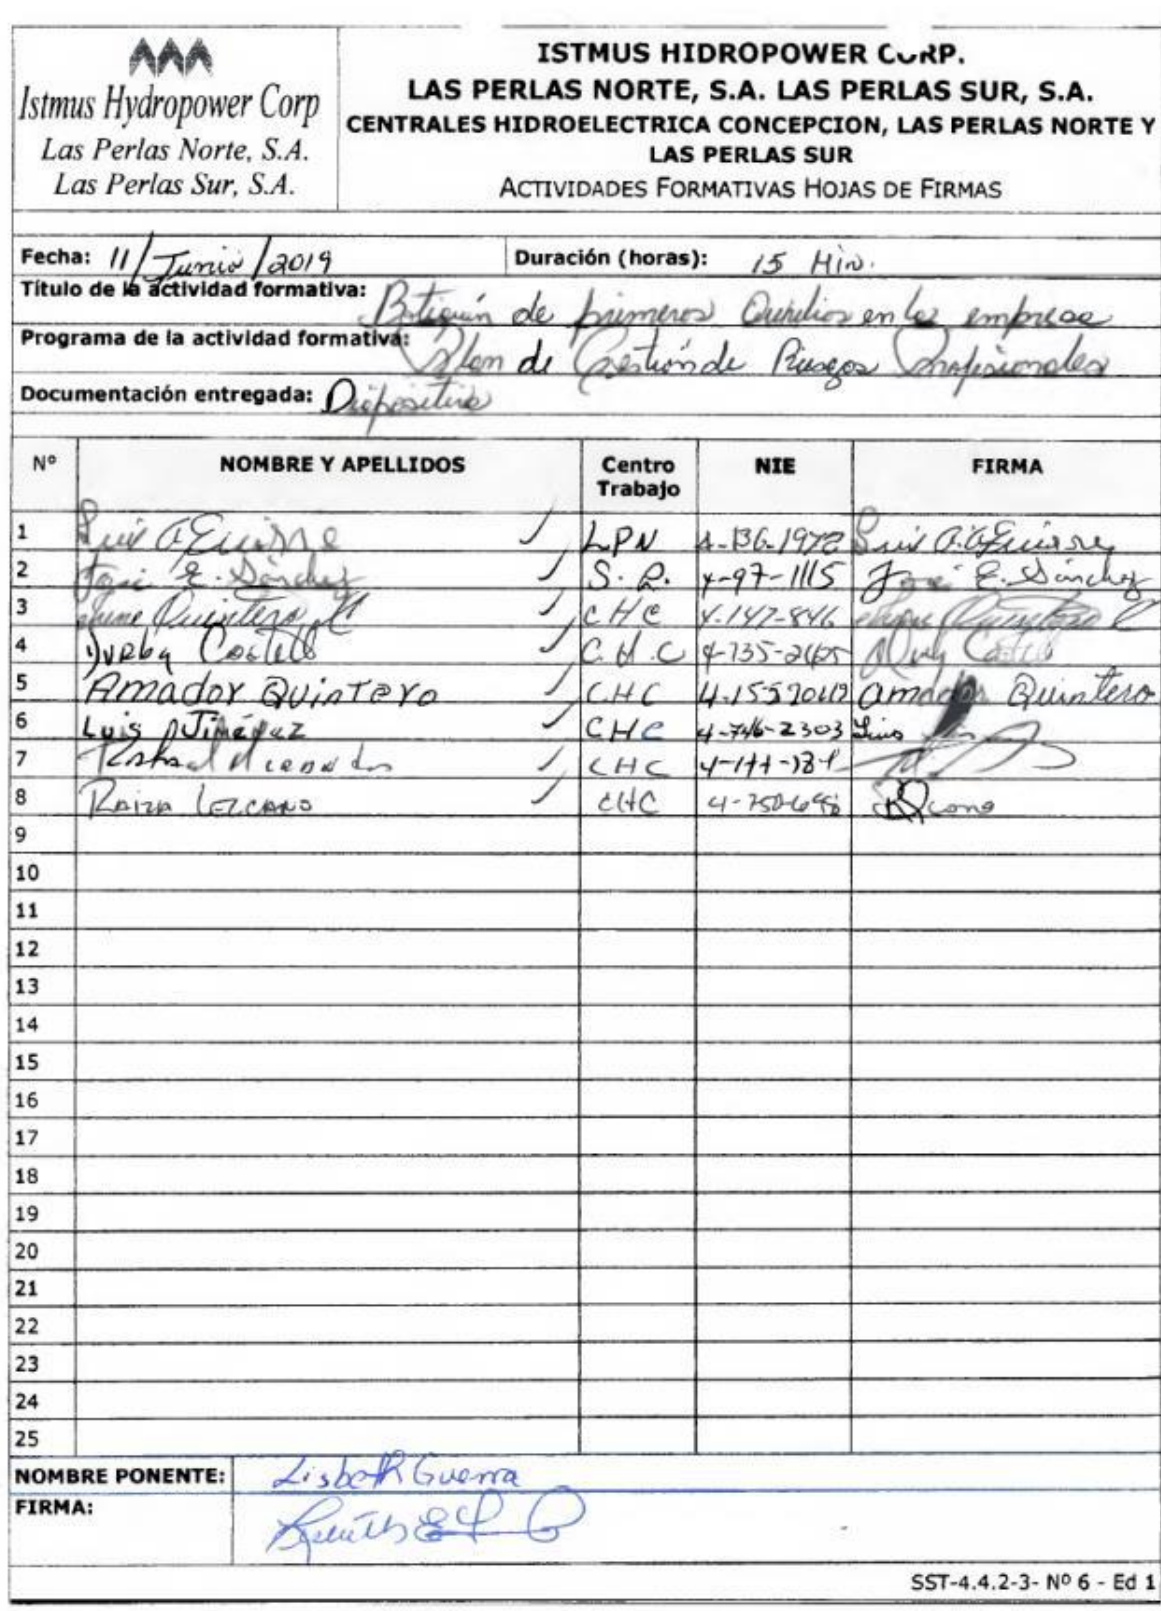 Istmus Hydropower Corp
Las Perlas Norte, S.A.
Las Perlas Sur, S.A.
ISTMUS HIDROPOWER CORP.
LAS PERLAS NORTE, S.A. LAS PERLAS SUR, S.A.
CENTRALES HIDROELECTRICA CONCEPCION, LAS PERLAS NORTE Y
LAS PERLAS SUR
ACTIVIDADES FORMATIVAS HOJAS DE FIRMAS
Fecha: 11/Junio/2019 Duración (horas): 15 Min.
Título de la actividad formativa: Botiquín de primeros Auxilios en las empresas
Programa de la actividad formativa: Plan de Gestión de Riesgos Profesionales
Documentación entregada: Diapositiva
Nº NOMBRE Y APELLIDOS Centro Trabajo NIE FIRMA
1 Luis A. Guirre LPN 4-136-1972 Luis A.
2 José E. Sánchez S. P. 4-97-1115 José E. Sánchez
3 Quintero CHC 4-147-846 Quintero
4 C.H.C
5 Amador Quintero CHC Amador Quintero
6 Luis Jiménez CHC 4-746-2303 Luis
7 CHC
8 Raiza Lezcano CHC
9
10
11
12
13
14
15
16
17
18
19
20
21
22
23
24
25
NOMBRE PONENTE: Lisbeth Guerra
FIRMA:
SST-4.4.2-3- Nº 6 - Ed 1